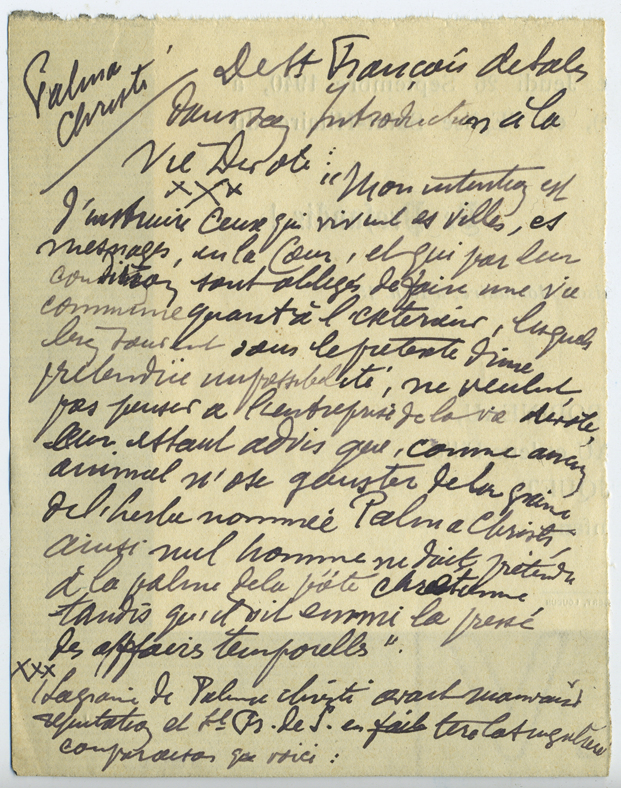 Palma
Christi
De St François de Sales
dans son Introduction à la
Vie Devote :
xxx "Mon intention est
d'instruire ceux qui vivent es villes, es
mesnages, en la Cour, et qui par leur
condition sont obligés de faire une vie
commune quant à l'exterieur, lesquels
bien souvent sous le pretexte d'une
pretendüe impossibilité, ne veulent
pas penser a l'entreprise de la vie devote,
leur estant advis que, comme aucun
animal n'ose gouster de la graine
de l'herbe nommée Palma Christi,
ainsi nul homme ne doit prétendre
à la palme de la piété chrétienne
tandis qu'il vit emmi la presse
des affaires temporelles".
xxx
La graine de Palma christi avait mauvaise
réputation et St Fr. de S. en fait la singulière
comparaison que voici :